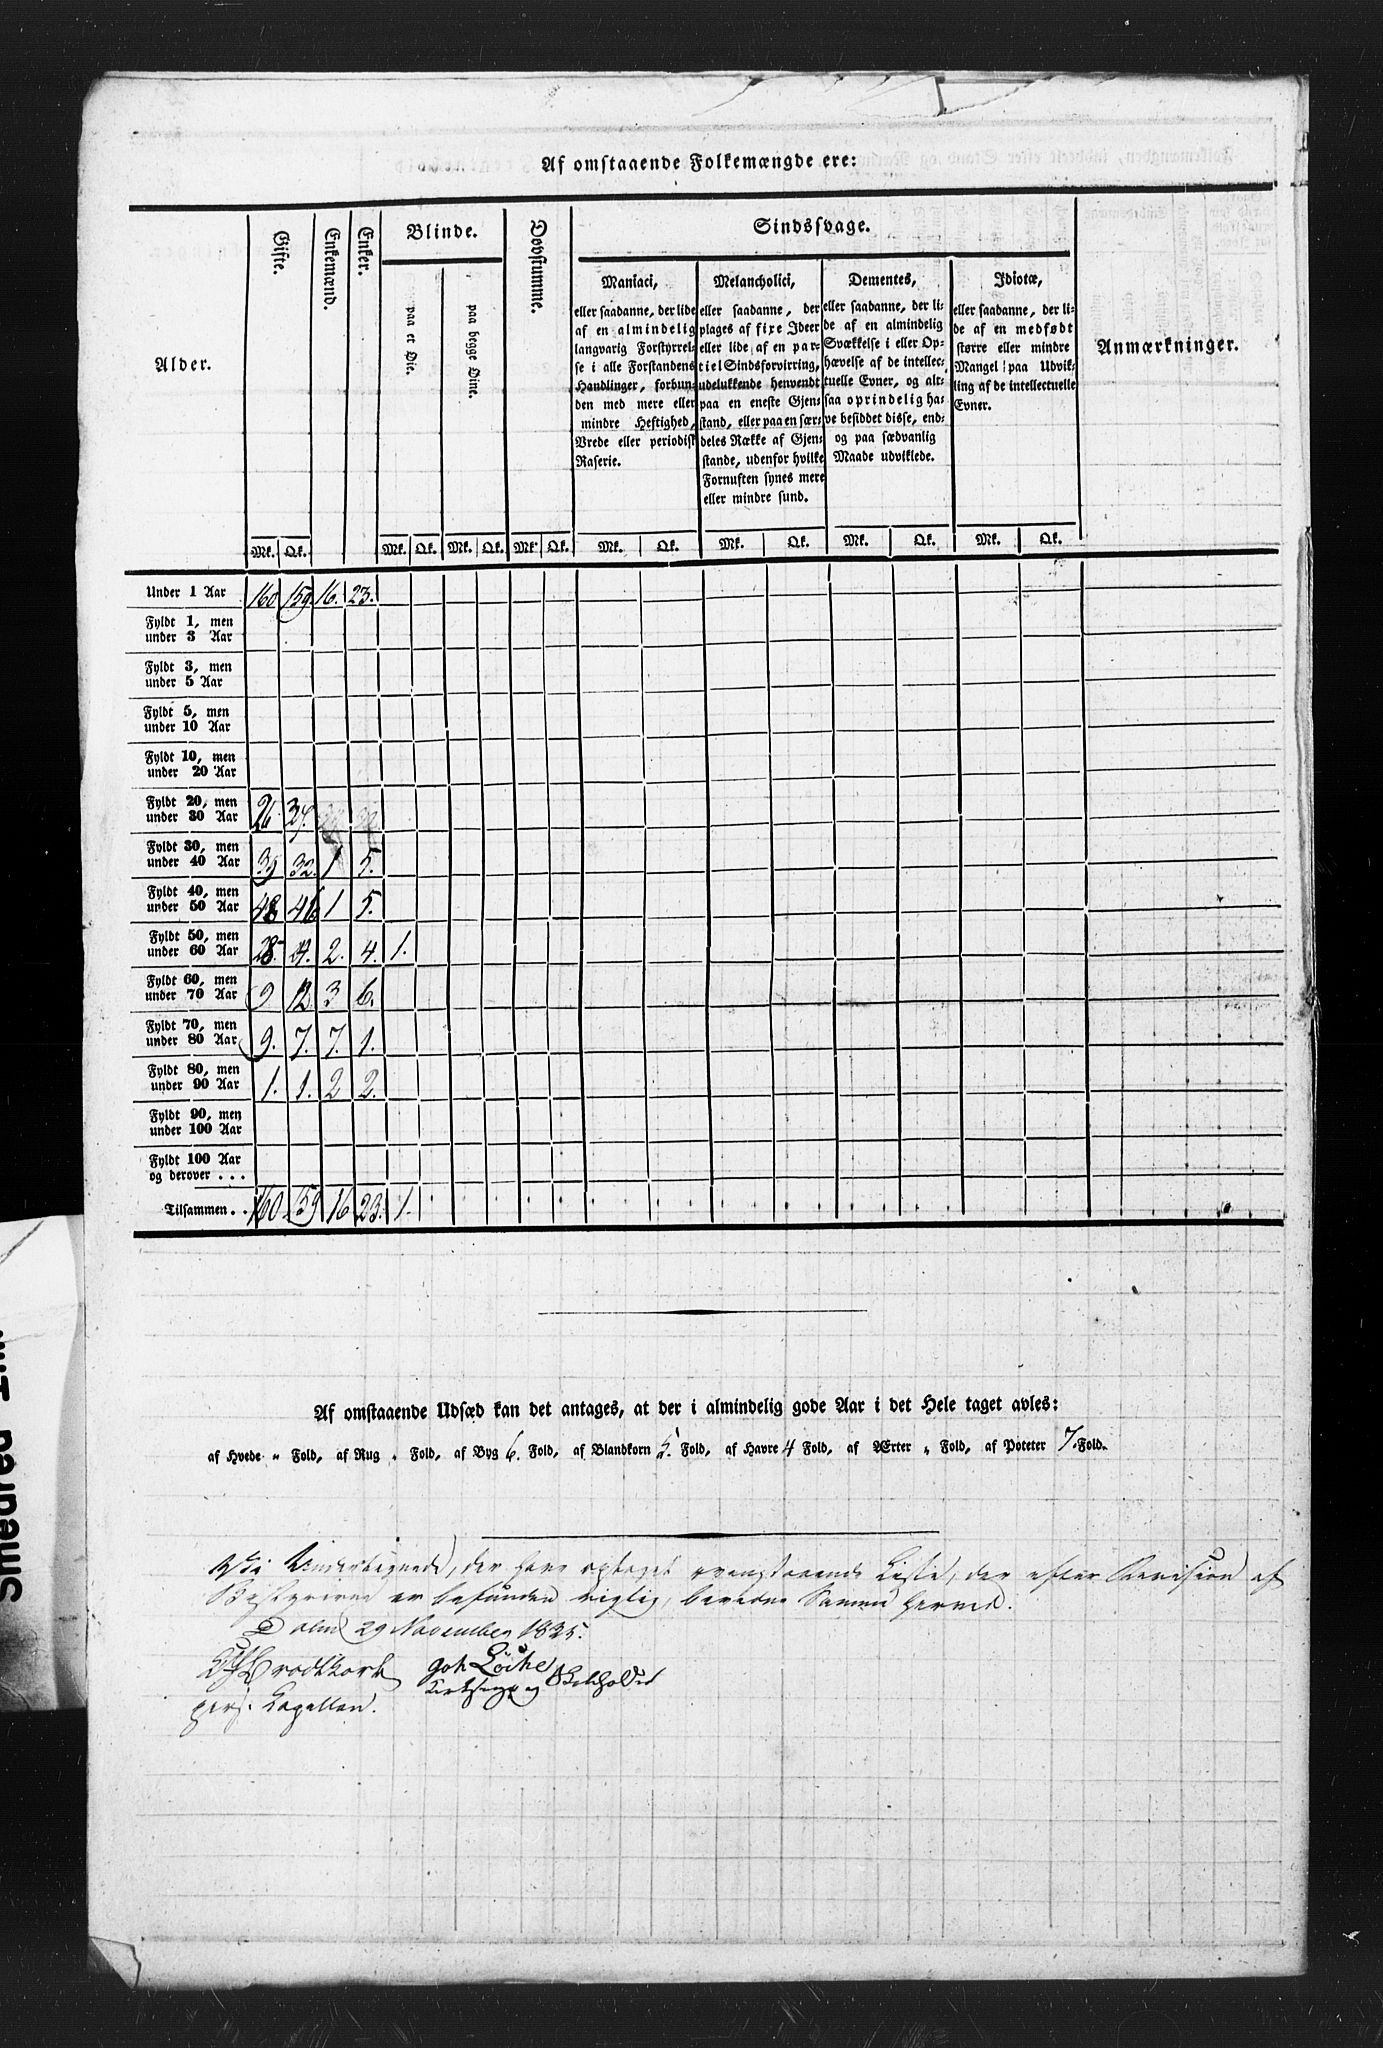 Af omstaaende Folkemængde ere:
Alder.
Gifte.
Enkemænd.
Enker.
Blinde.
paa et Øie.
paa begge Øine.
Døvstumme.
Sindssvage.
Maniaci,
eller saadanne, der lide
af en almindelig
langvarig Forstyrrel-
se i alle Forstandens
Handlinger, forbun-
den med mere eller
mindre Heftighed,
Vrede eller periodisk
Raserie.
Melancholici,
eller saadanne, der
plages af fixe Ideer
eller lide af en par-
tiel Sindsforvirring,
udelukkende henvendt
paa en eneste Gjen-
stand, eller paa en sær-
deles Række af Gjen-
stande, udenfor hvilke
Fornuften synes mere
eller mindre sund.
Dementes,
eller saadanne, der li-
de af en almindelig
Svækkelse i eller Op-
hævelse af de intellec-
tuelle Evner, og alt-
saa oprindelig ha-
ve besiddet disse, end-
og paa sædvanlig
Maade udviklede.
Idiotæ,
eller saadanne, der li-
de af en medfødt
større eller mindre
Mangel paa Udvik-
ling af de intellectuelle
Evner.
Anmærkninger.
Mk. Qk. Mk. Qk. Mk. Qk. Mk. Qk. Mk. Qk. Mk. Qk. Mk. Qk. Mk. Qk.
Under 1 Aar 160 159. 16. 23.
Fyldt 1, men
under 3 Aar
Fyldt 3, men
under 5 Aar
Fyldt 5, men
under 10 Aar
Fyldt 10, men
under 20 Aar
Fyldt 20, men
under 30 Aar 26.
Fyldt 30, men
under 40 Aar 39 32. 1 5.
Fyldt 40, men
under 50 Aar 48 46 1 5.
Fyldt 50, men
under 60 Aar 28. 2. 4. 1.
Fyldt 60, men
under 70 Aar 9 12. 3 6.
Fyldt 70, men
under 80 Aar 9. 7. 7. 1.
Fyldt 80, men
under 90 Aar 1. 1. 2 2.
Fyldt 90, men
under 100 Aar
Fyldt 100 Aar
og derover . . .
Tilsammen . . 160. 159 16 23. 1.
Af omstaaende Udsæd kan det antages, at der i almindelig gode Aar i det Hele taget avles:
af Hvede " Fold, af Rug " Fold, af Byg 6. Fold, af Blandkorn 5. Fold, af Havre 4 Fold, af Ærter " Fold, af Poteter 7. Fold.
Vi Undertegnede, der have optaget ovenstaaende Liste, der efter Revision af
Bestyreren er befunden rigtig, bevidne Samme herved.
Dolm 29 November 1835.
Brodtkorb Joh Löche
pers. Capellan. Kirkesanger og Skoleholder